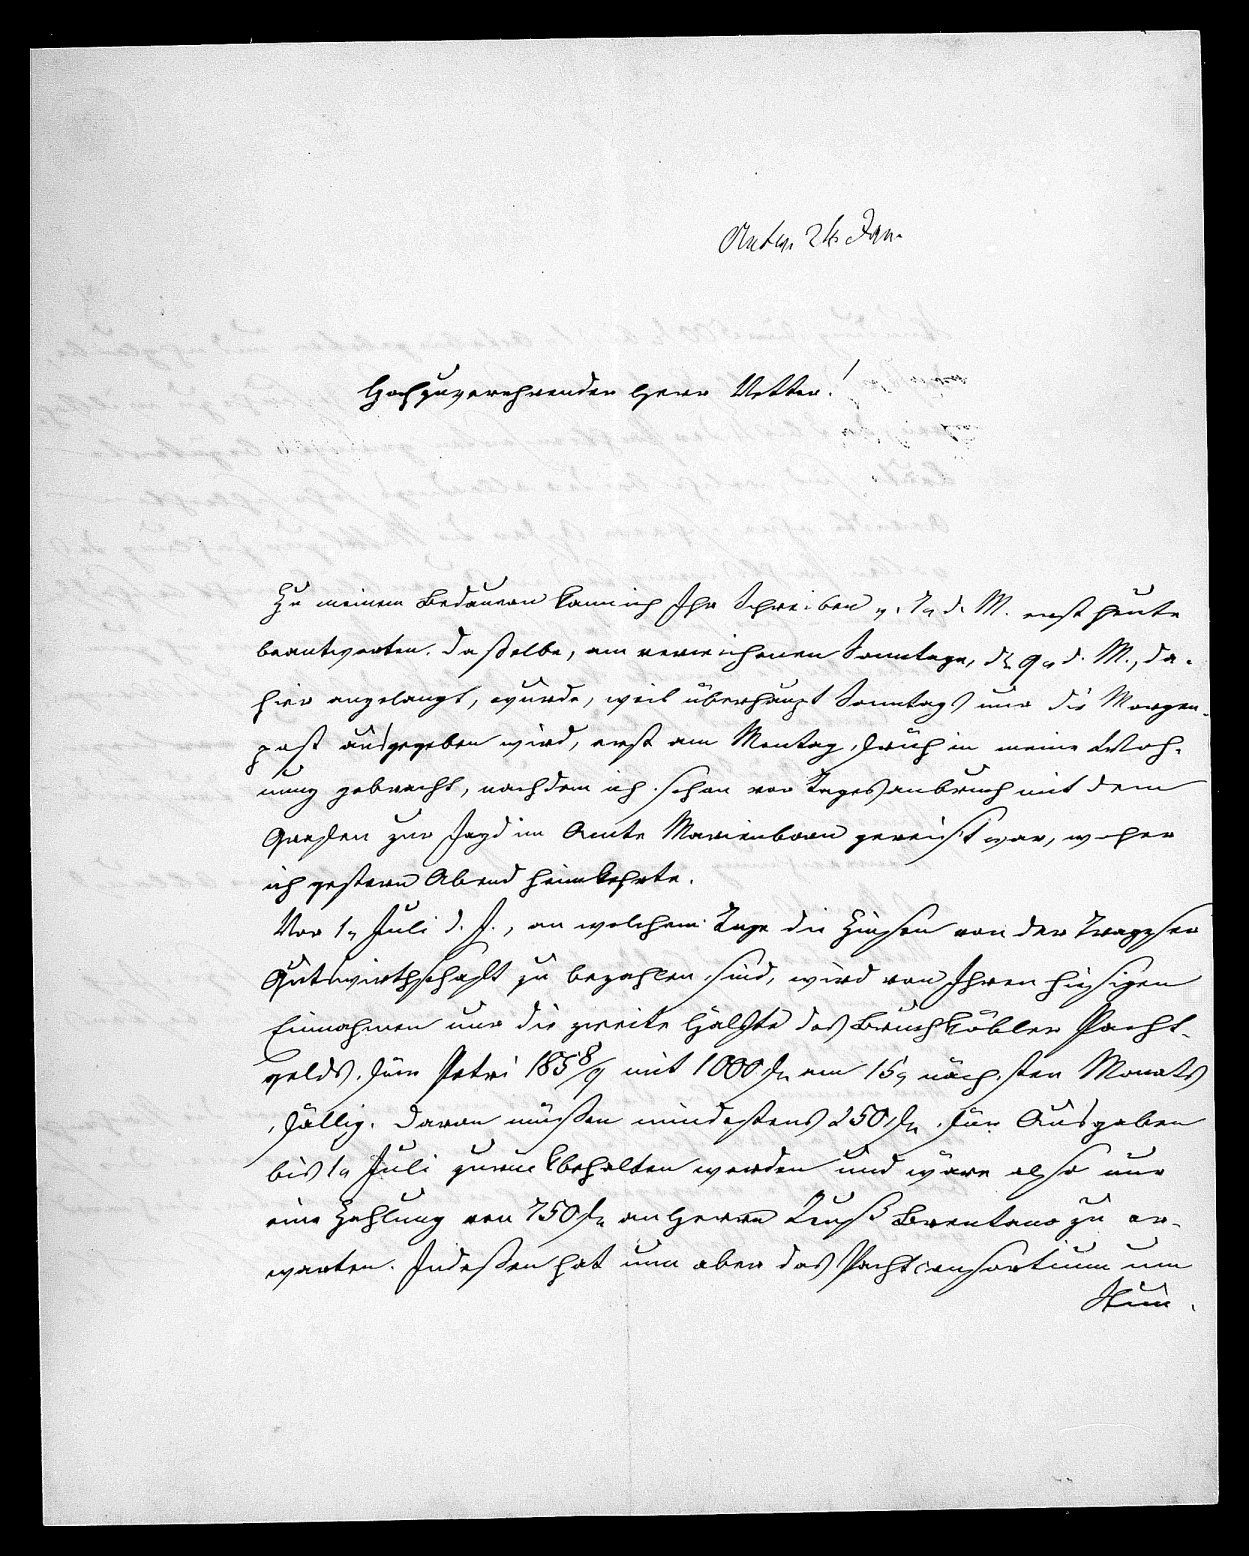 Antw. 24 Jan.
Hochzuverehrender Herr Vetter!
Zu meinem Bedauern kann ich Ihr Schreiben v. 7n d. M. erst heute
beantworten. Daßelbe, am verwichenen Sonntage, d. 9n d. M., da-
hier angelangt, wurde, weil überhaupt Sonntags nur die Morgen-
post ausgegeben wird, erst am Montag früh in meine Woh-
nung gebracht, nachdem ich schon vor Tagesanbruch mit dem
Grafen zur Jagd im Amte Marienborn gereist war, woher
ich gestern Abend heimkehrte.
Vor 1n Juli d. J., an welchem Tage die Zinsen von der Trages
Gutswirthschaft zu bezahlen sind, wird von Ihren hiesigen
Einnahmen nur die zweite Hälfte des Bruchköbler Pacht-
gelds für Petri 1858/9 mit 1000 fl. am 15n nächsten Monats
fällig. Davon müßen mindestens 250 fl. für Ausgaben
bis 1n Juli zurückbehalten werden und wäre also nur
eine Zahlung von 750 fl. an Herrn Brentano zu er-
warten. Indeßen hat nun aber das Pachtconsortium um